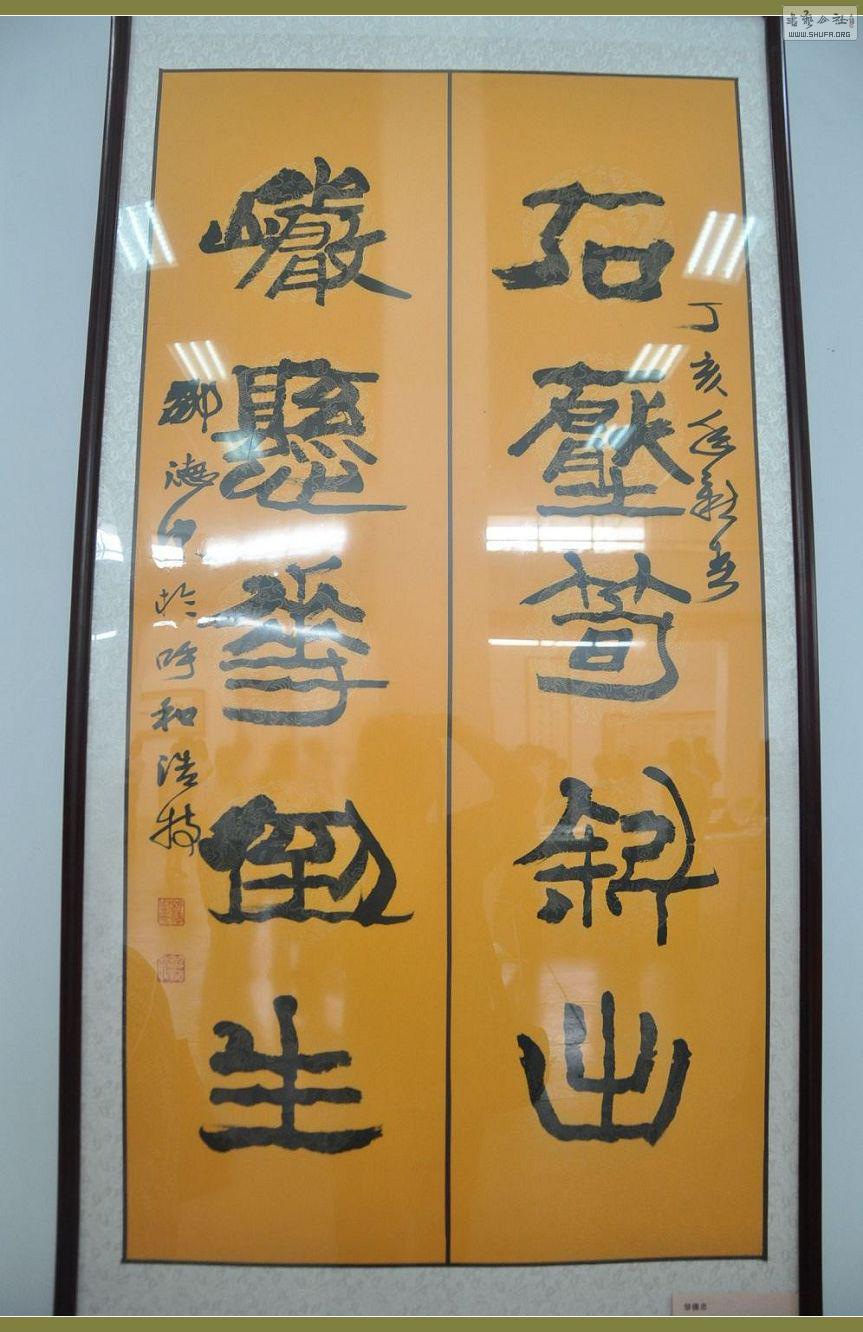 书艺公社
WWW.SHUFA.ORG
石壓筍斜出
丁亥年
巗懸華倒生
鄒德忠於呼和浩特
鄒德忠